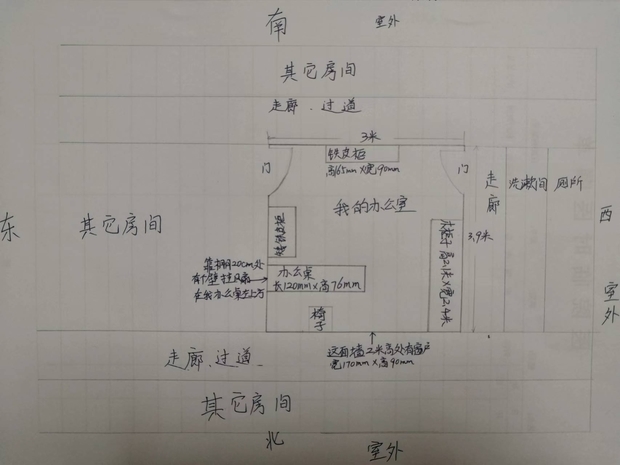 南
室外
其它房间
走廊.过道
3米
铁皮柜
高165mm×宽90mm
门
门
走廊
洗漱间
厕所
东
其它房间
我的办公室
西
3.9米
室外
靠桐20cm处
有个壁挂风扇
在我办公桌上方
办公桌
长120mm×高76mm
椅子
木柜 高2.1米×宽2.4米
这面墙2米高处有窗户
宽170mm×高90mm
走廊.过道
其它房间
北
室外